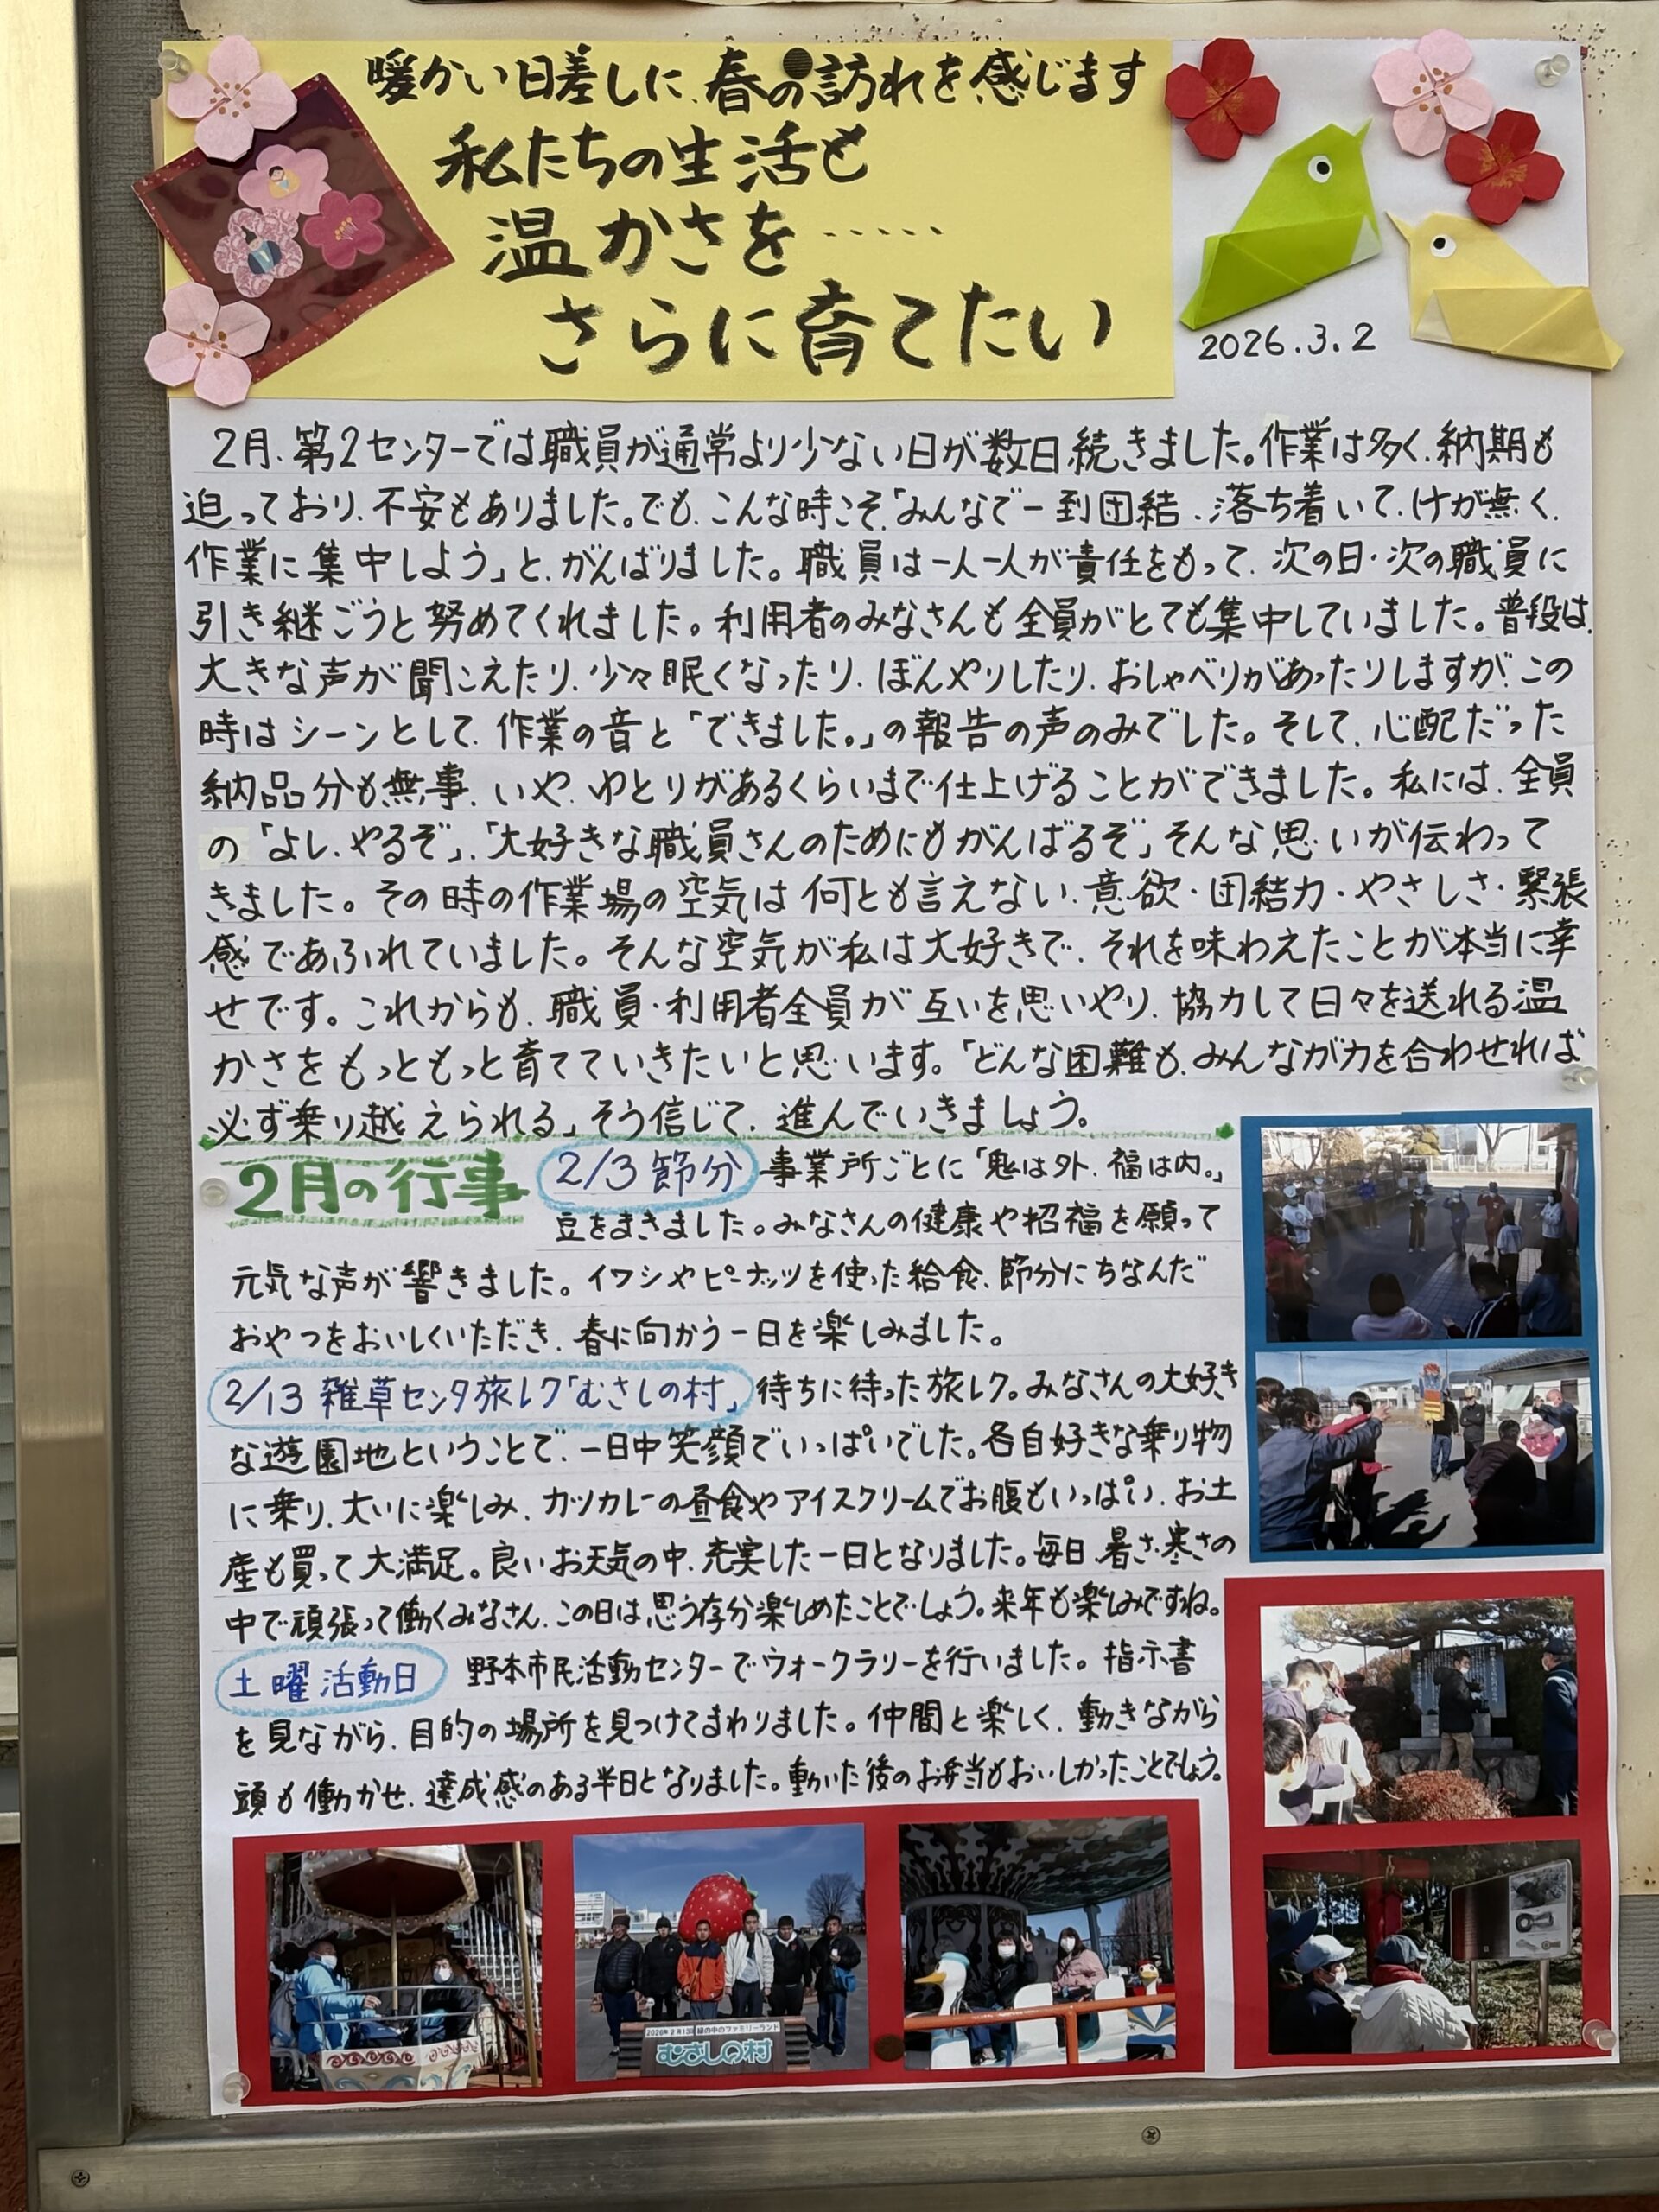 暖かい日差しに、春の訪れを感じます
私たちの生活も
温かさを……
さらに育てたい
2026.3.2
2月、第2センターでは職員が通常より少ない日が数日続きました。作業は多く、納期も
迫っており、不安もありました。でも、こんな時こそ「みんなで一到団結、落ち着いて、けが無く、
作業に集中しよう」と、がんばりました。職員は一人一人が責任をもって、次の日・次の職員に
引き継ごうと努めてくれました。利用者のみなさんも全員がとても集中していました。普段は、
大きな声が聞こえたり、少々眠くなったり、ぼんやりしたり、おしゃべりがあったりしますが、この
時はシーンとして、作業の音と「できました。」の報告の声のみでした。そして、心配だった
納品分も無事、いや、ゆとりがあるくらいまで仕上げることができました。私には、全員
の「よし、やるぞ」、「大好きな職員さんのためにもがんばるぞ」そんな思いが伝わって
きました。その時の作業場の空気は何とも言えない、意欲・団結力・やさしさ・緊張
感であふれていました。そんな空気が私は大好きで、それを味わえたことが本当に幸
せです。これからも、職員・利用者全員が互いを思いやり、協力して日々を送れる温
かさをもっともっと育てていきたいと思います。「どんな困難も、みんなが力を合わせれば
必ず乗り越えられる」そう信じて、進んでいきましょう。
2月の行事
2/3 節分 事業所ごとに「鬼は外、福は内。」
豆をまきました。みなさんの健康や招福を願って
元気な声が響きました。イワシやピーナッツを使った給食、節分にちなんだ
おやつをおいしくいただき、春に向かう一日を楽しみました。
2/13 雑草センタ旅レク「むさしの村」 待ちに待った旅レク。みなさんの大好き
な遊園地ということで、一日中笑顔でいっぱいでした。各自好きな乗り物
に乗り、大いに楽しみ、カツカレーの昼食やアイスクリームでお腹もいっぱい、お土
産も買って大満足。良いお天気の中、充実した一日となりました。毎日、暑さ・寒さの
中で頑張って働くみなさん、この日は思う存分楽しめたことでしょう。来年も楽しみですね。
土曜活動日 野本市民活動センターでウォークラリーを行いました。指示書
を見ながら、目的の場所を見つけてまわりました。仲間と楽しく、動きながら
頭も働かせ、達成感のある半日となりました。動いた後のお弁当もおいしかったことでしょう。
2026年2月13日 緑の中のファミリーランド
むさしの村